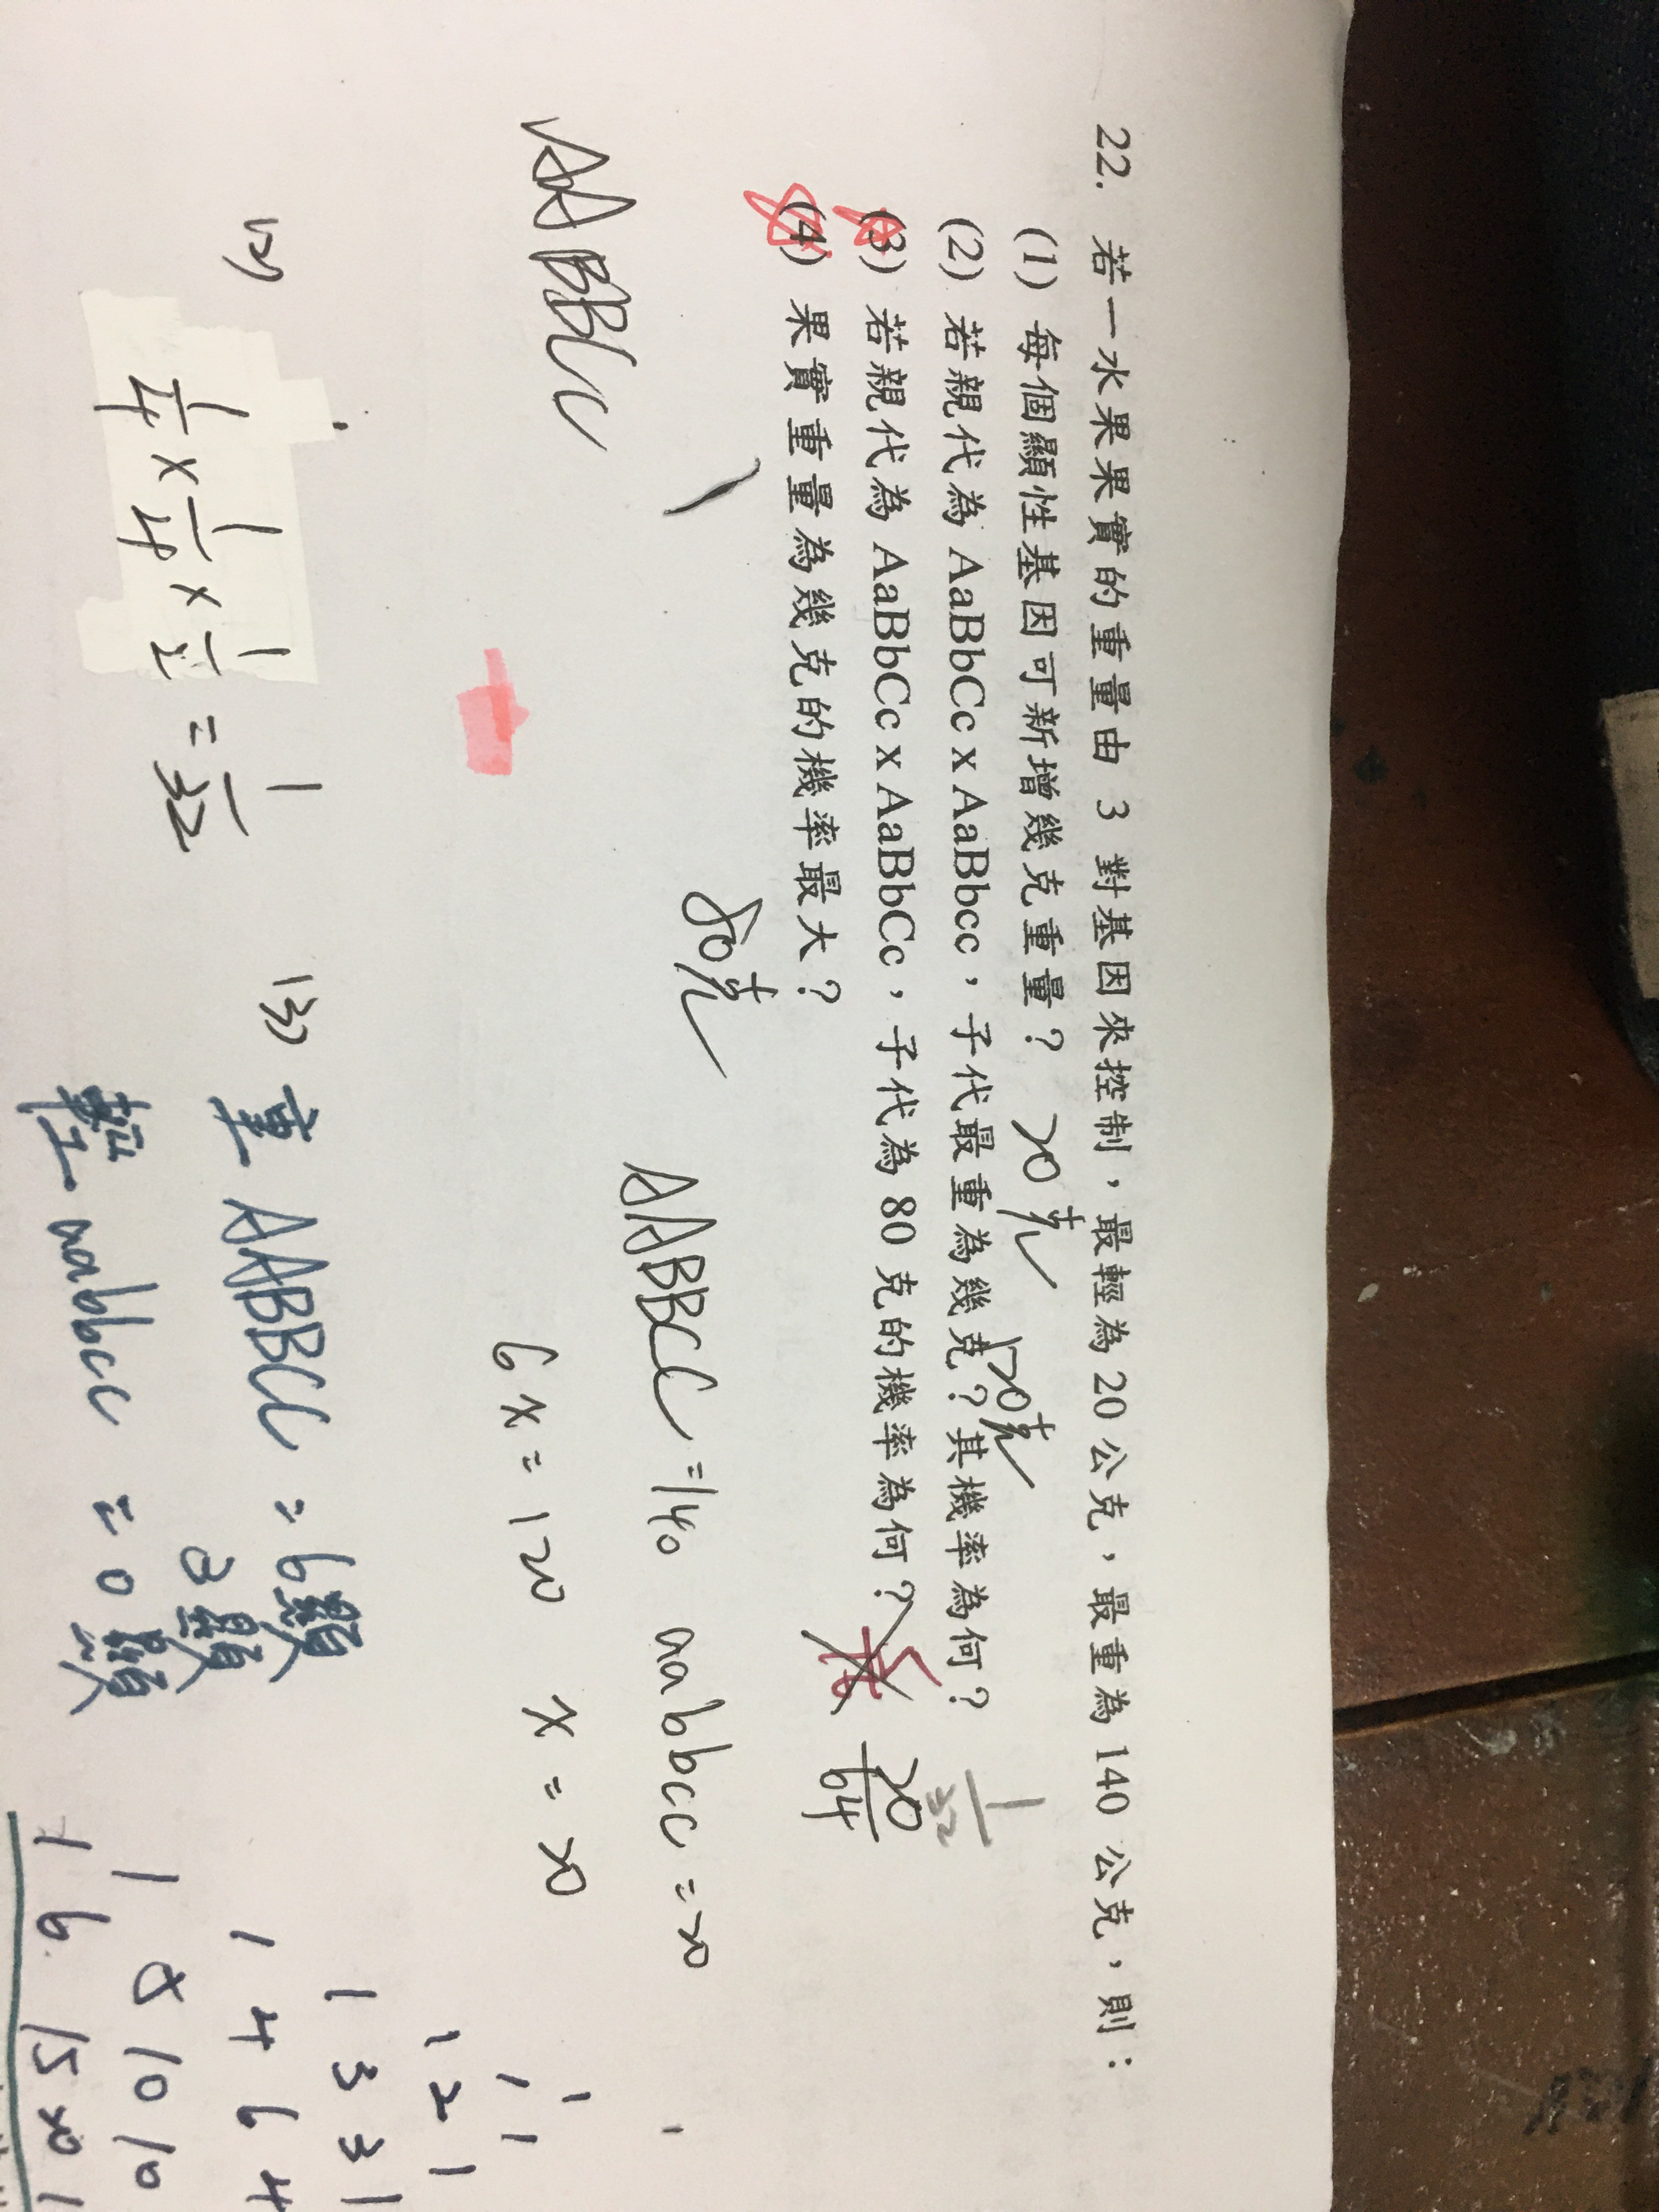 22. 若一水果果實的重量由 3 對基因來控制，最輕為 20 公克，最重為 140 公克，則：
(1) 每個顯性基因可新增幾克重量？ 20克
(2) 若親代為 AaBbCc x AaBbcc，子代最重為幾克？其機率為何？ 120克 1/32
(3) 若親代為 AaBbCc x AaBbCc，子代為 80 克的機率為何？ 20/64
(4) 果實重量為幾克的機率最大？
80克
AABBCC = 140 aabbcc = 20
AABBCc
6x = 120 x = 20
(2) 1/4 × 1/4 × 1/2 = 1/32
(3) 重 AABBCC = 6顯
3顯
輕 aabbcc = 0顯
1 1
1 2 1
1 3 3 1
1 4 6 4
1 5 10 10
1 6 15 20 1